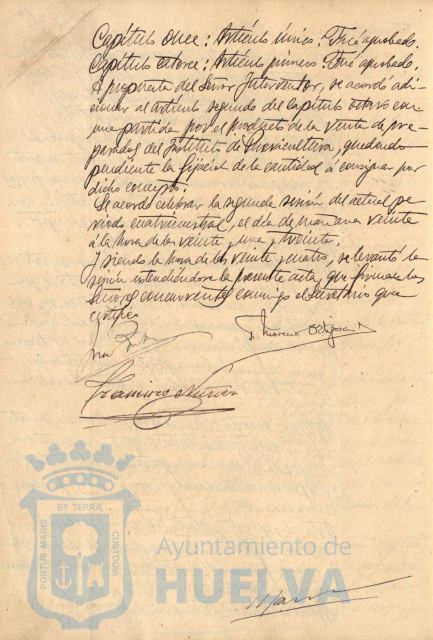 Capítulo once: Artículo único: Fué aprobado.
Capítulo catorce: Artículo primero: Fué aprobado.
A propuesta del Señor Interventor, se acordó adi-
cionar al artículo segundo del capítulo octavo con
una partida por el producto de la venta de pre-
parados del Instituto de Puericultura, quedando
pendiente la fijación de la cantidad á consignar por
dicho concepto.
Se acordó celebrar la segunda sesión del actual pe-
riodo cuatrimestral, el día de mañana veinte
á la hora de las veinte y una y treinta.
Y siendo la hora de las veinte y cuatro, se levantó la
sesión extendiéndose la presente acta, que firman los
Señores concurrentes conmigo el Secretario que
certifico
F. Moreno Ortigosa
Francisco Núñez
ET TERRA
PORTUS MARIS
CUSTODIA
Ayuntamiento de
HUELVA